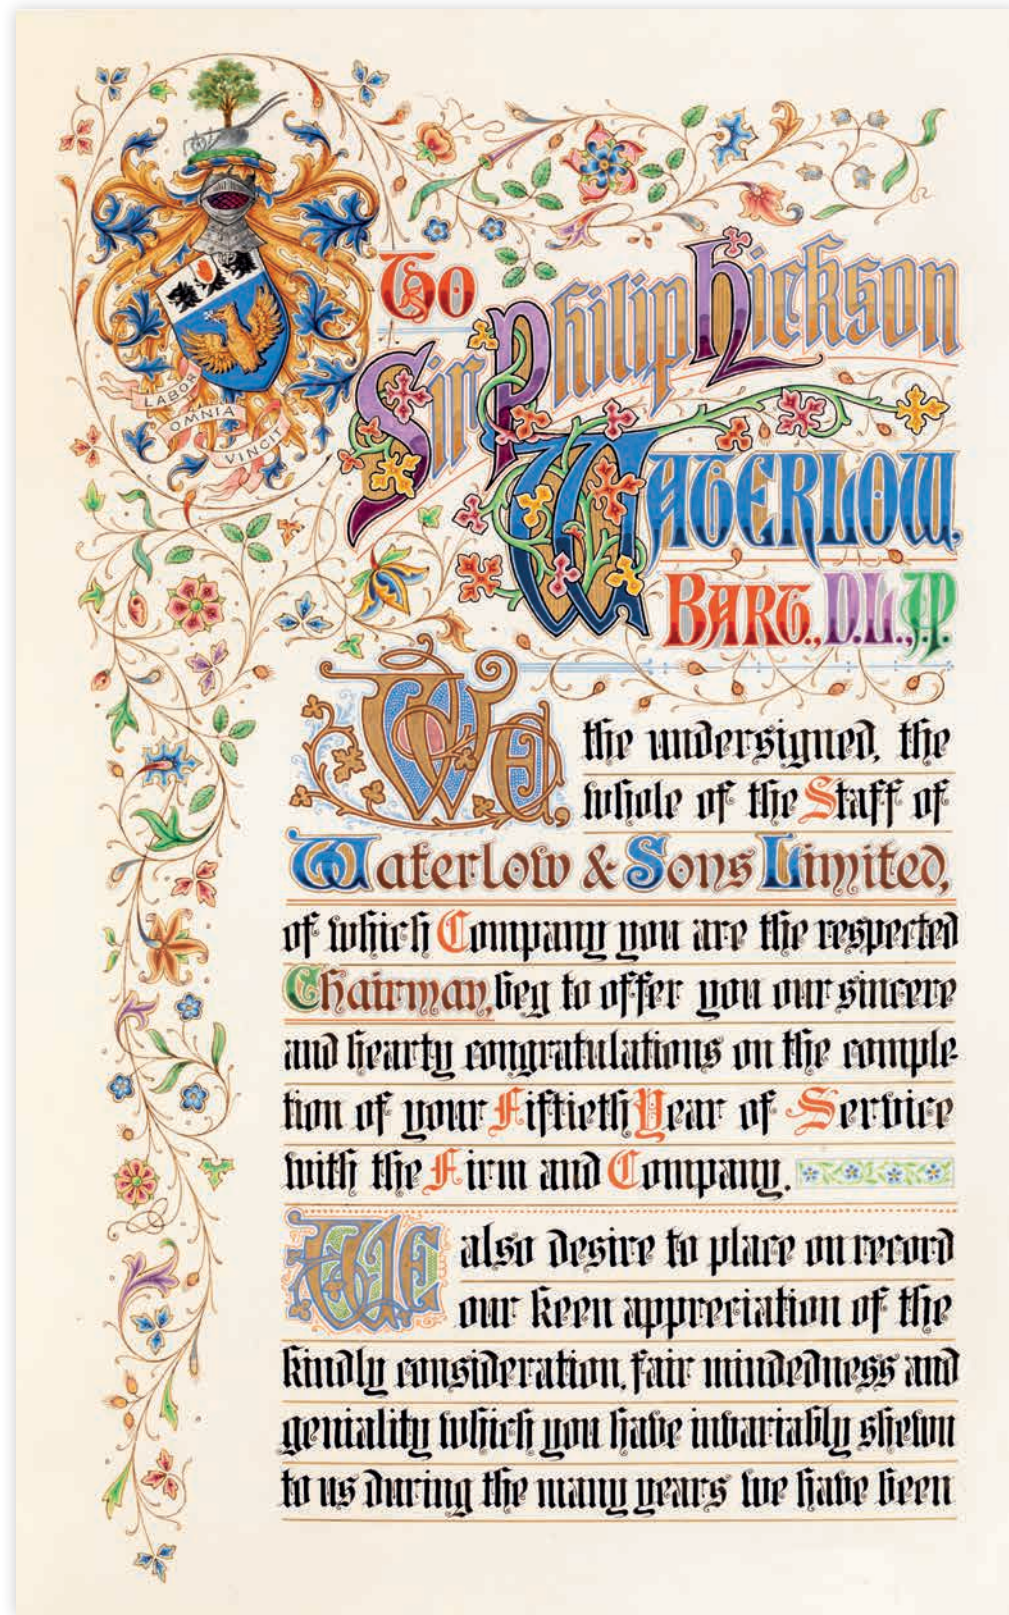 LABOR
OMNIA
VINCIT
To
Sir Philip Hickson
Waterlow.
Bart., D.L., J.P.
We,
the undersigned, the
whole of the Staff of
Waterlow & Sons Limited,
of which Company you are the respected
Chairman, beg to offer you our sincere
and hearty congratulations on the comple-
tion of your Fiftieth Year of Service
with the Firm and Company.
We also desire to place on record
our keen appreciation of the
kindly consideration, fair mindedness and
geniality which you have invariably shewn
to us during the many years we have been